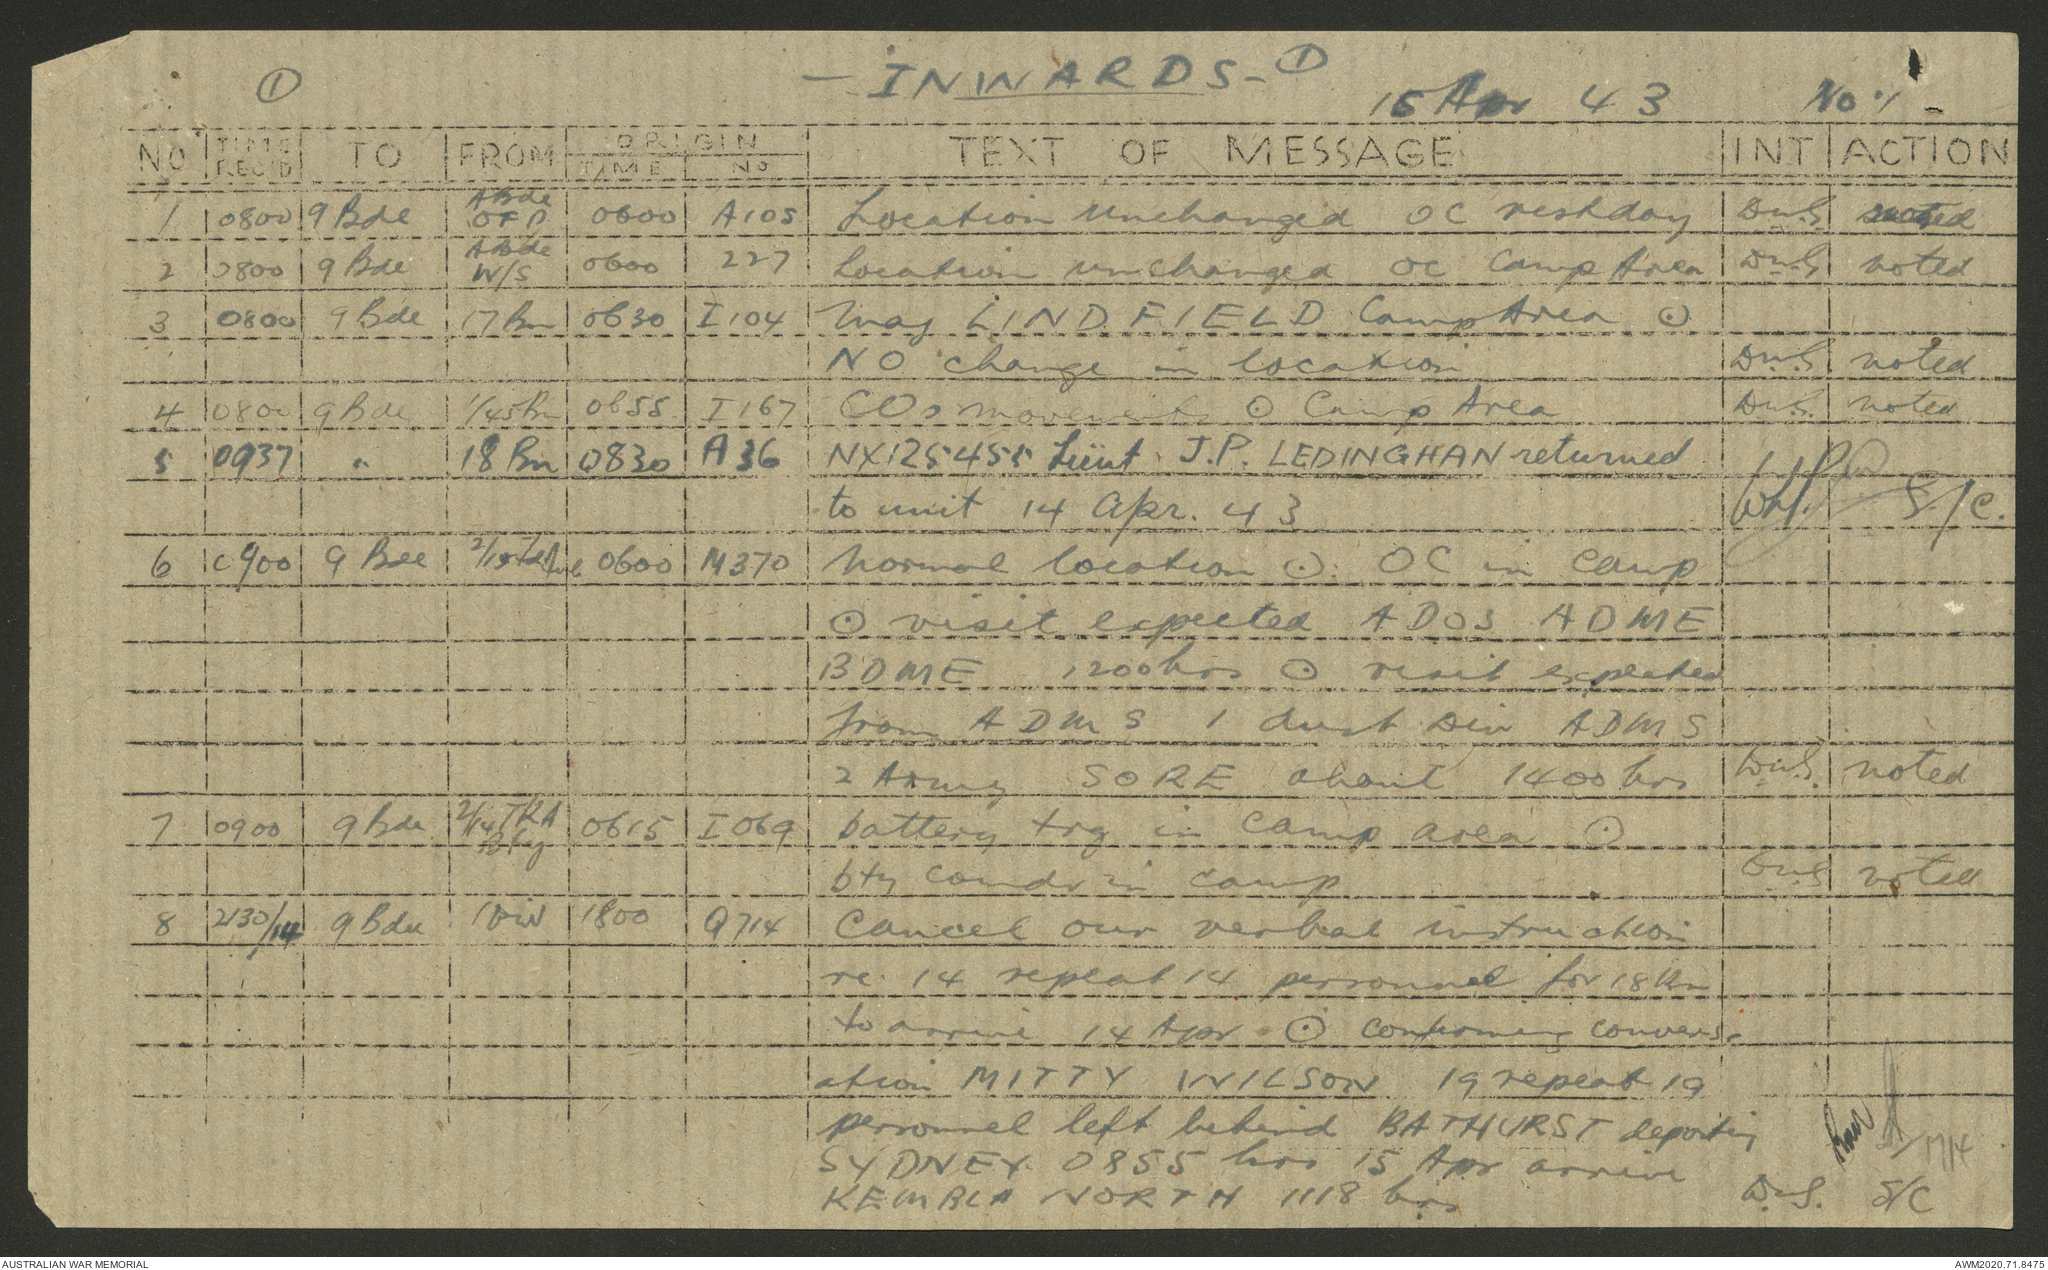 ①
- INWARDS - ①
15 Apr 43 No. 1
NO | TIME REC'D | TO | FROM | ORIGIN TIME | NO | TEXT OF MESSAGE | INT | ACTION
1 | 0800 | 9 Bde | A Bde OFP | 0600 | A105 | Location unchanged OC restday | DWS | noted
2 | 0800 | 9 Bde | A Bde W/S | 0600 | 227 | Location unchanged OC Camp Area | DWS | noted
3 | 0800 | 9 Bde | 17 Bn | 0630 | I104 | Maj LINDFIELD Camp Area ⊙
NO change in location | DWS | noted
4 | 0800 | 9 Bde | 1/45 Bn | 0655 | I167 | COs movements ⊙ Camp Area | DWS. | noted
5 | 0937 | " | 18 Bn | 0830 | A36 | NX125455 Lieut J.P. LEDINGHAN returned
to unit 14 Apr. 43 | S/C.
6 | 0900 | 9 Bde | 2/1st Fd Amb | 0600 | M370 | Normal location ⊙. OC in camp
⊙ visit expected ADOS ADME
BDME 1200 hrs ⊙ visit expected
from ADMS 1 Aust Div ADMS
2 Army SORE about 1400 hrs | DWS. | noted
7 | 0900 | 9 Bde | 2/14 Bty | 0615 | I069 | battery trg in camp area ⊙
bty comdr in camp | DWS | noted
8 | 2130/14 | 9 Bde | 1 Div | 1800 | Q714 | Cancel our verbal instruction
re 14 repeat 14 personnel for 18 Bn
to arrive 14 Apr ⊙ confirming convers-
ation MITTY WILSON 19 repeat 19
personnel left behind BATHURST departing
SYDNEY 0855 hrs 15 Apr arrive
KEMBLA NORTH 1118 hrs | DWS. | S/C
17/4
AUSTRALIAN WAR MEMORIAL
AWM2020.71.8475